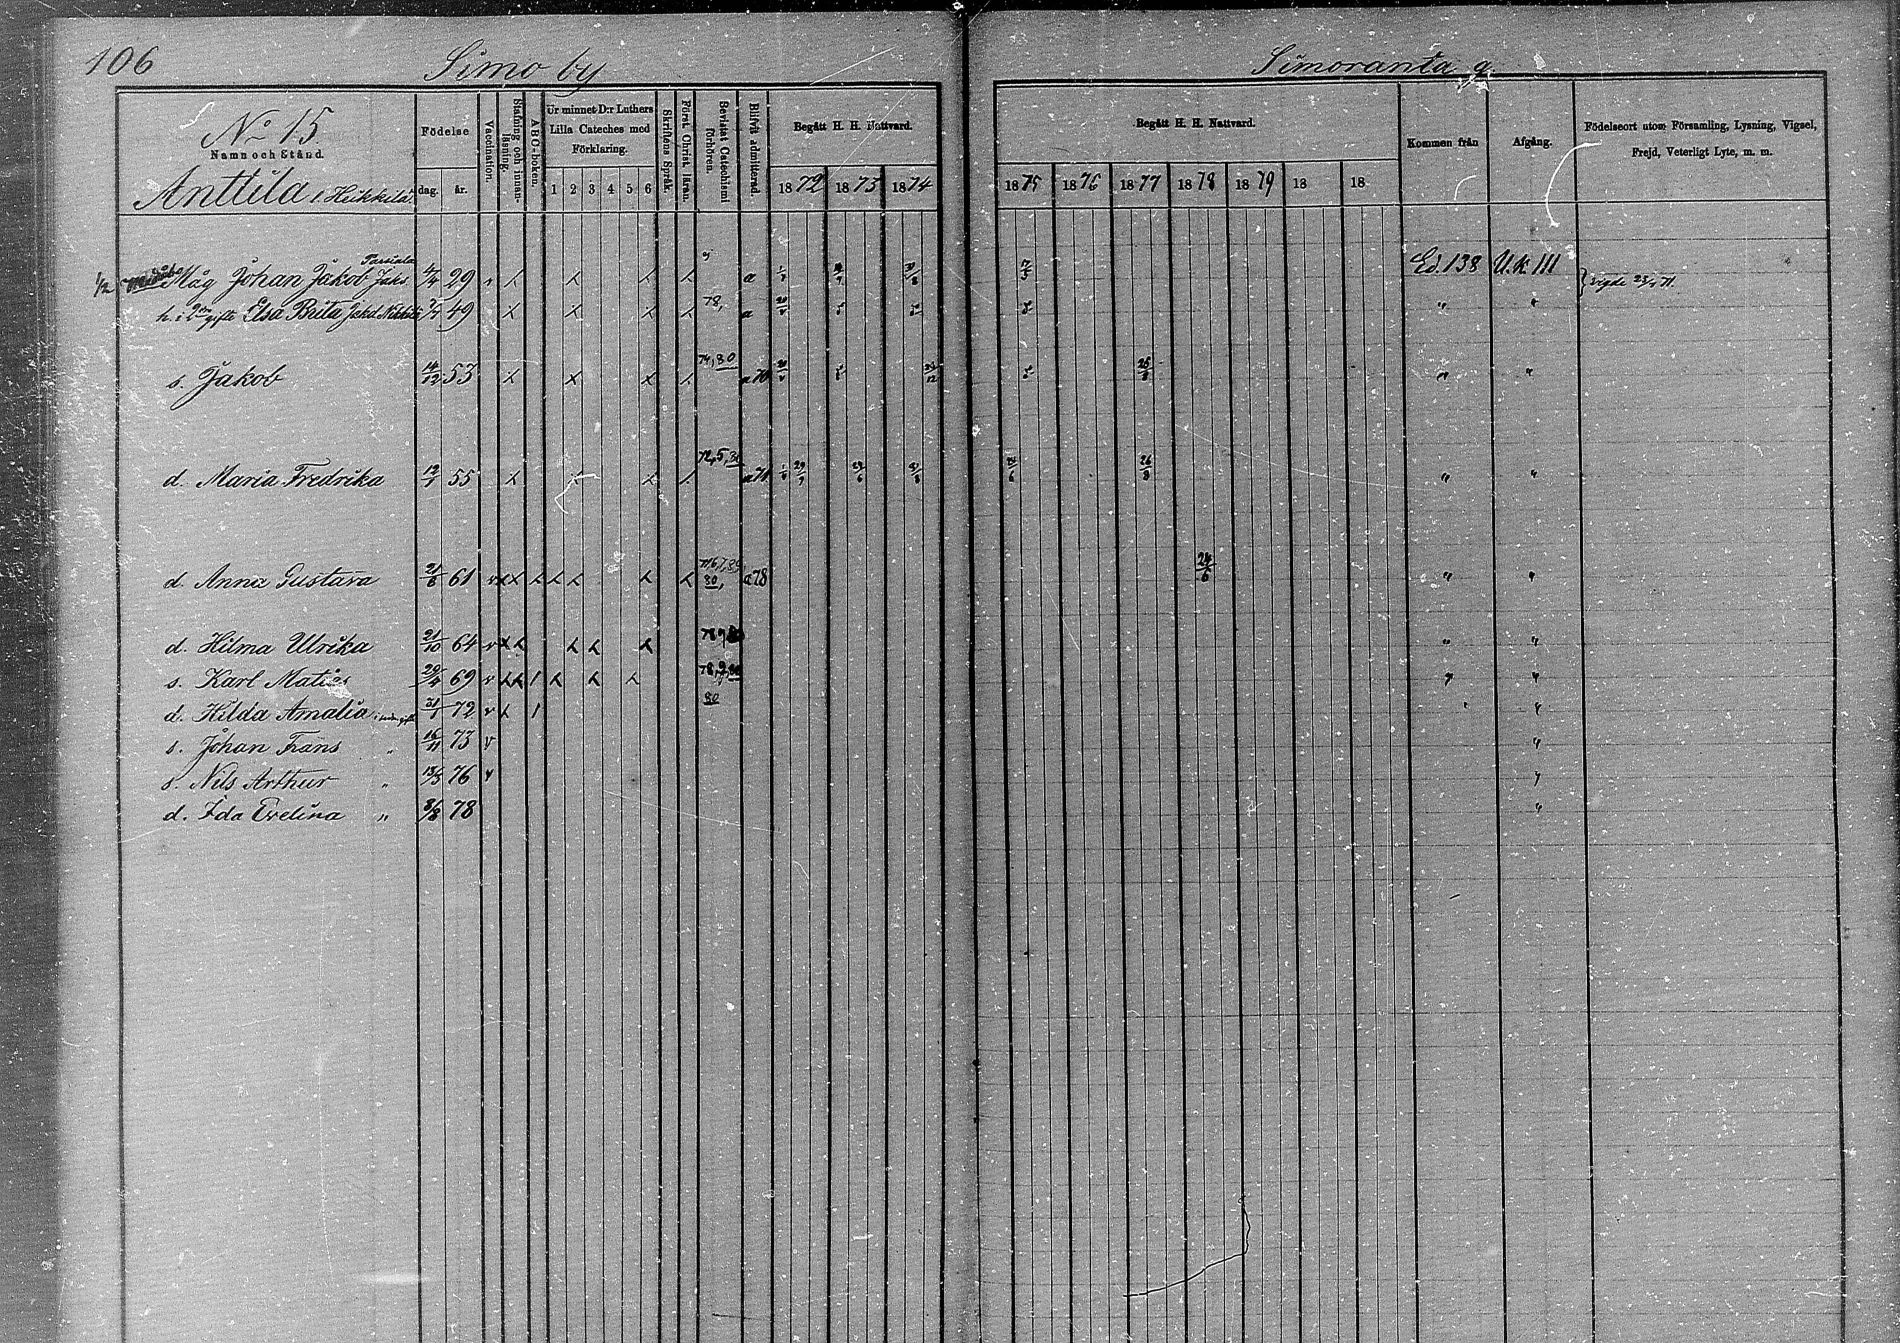 106
Simo by
Simoranta q
No 15
Namn och Stånd.
Anttila l. Heikkilä
Födelse
dag. år.
Vaccination.
Stafning och innanläsning.
ABC-boken.
Ur minnet D:r Luthers
Lilla Cateches med
Förklaring.
1 2 3 4 5 6
Skriftens Språk.
Först. Christ. läran.
Bevista Catechismi förhören.
Blifvit admitterad.
Begått H. H. Nattvard.
1872 1873 1874
Begått H. H. Nattvard.
1875 1876 1877 1878 1879 18 18
Kommen från
Afgång.
Födelseort utom Församling, Lysning, Vigsel,
Frejd, Veterligt Lyte, m. m.
1/2 Måg Johan Jakob Jaks. 4/4 29 v x x x x a Ed. 138 U.k. 111
h. i 2dra gifte Elsa Brita 49 x x x x 78, a " "
s. Jakob 14/12 53 x x x x 74, 80 a70 25/8 " "
d. Maria Fredrika 55 x x x x a71 26/8 " "
d. Anna Gustava 21/8 61 v xx x x x x x 80, a78 24/6 " "
d. Hilma Ulrika 21/10 64 v xx x x x " "
s. Karl Matias 20/4 69 v xx 1 x x x " "
d. Hilda Amalia 31/1 72 v x 1 80 " "
s. Johan Frans " 16/11 73 v "
s. Nils Arthur " 13/5 76 v "
d. Ida Evelina " 3/8 78 "